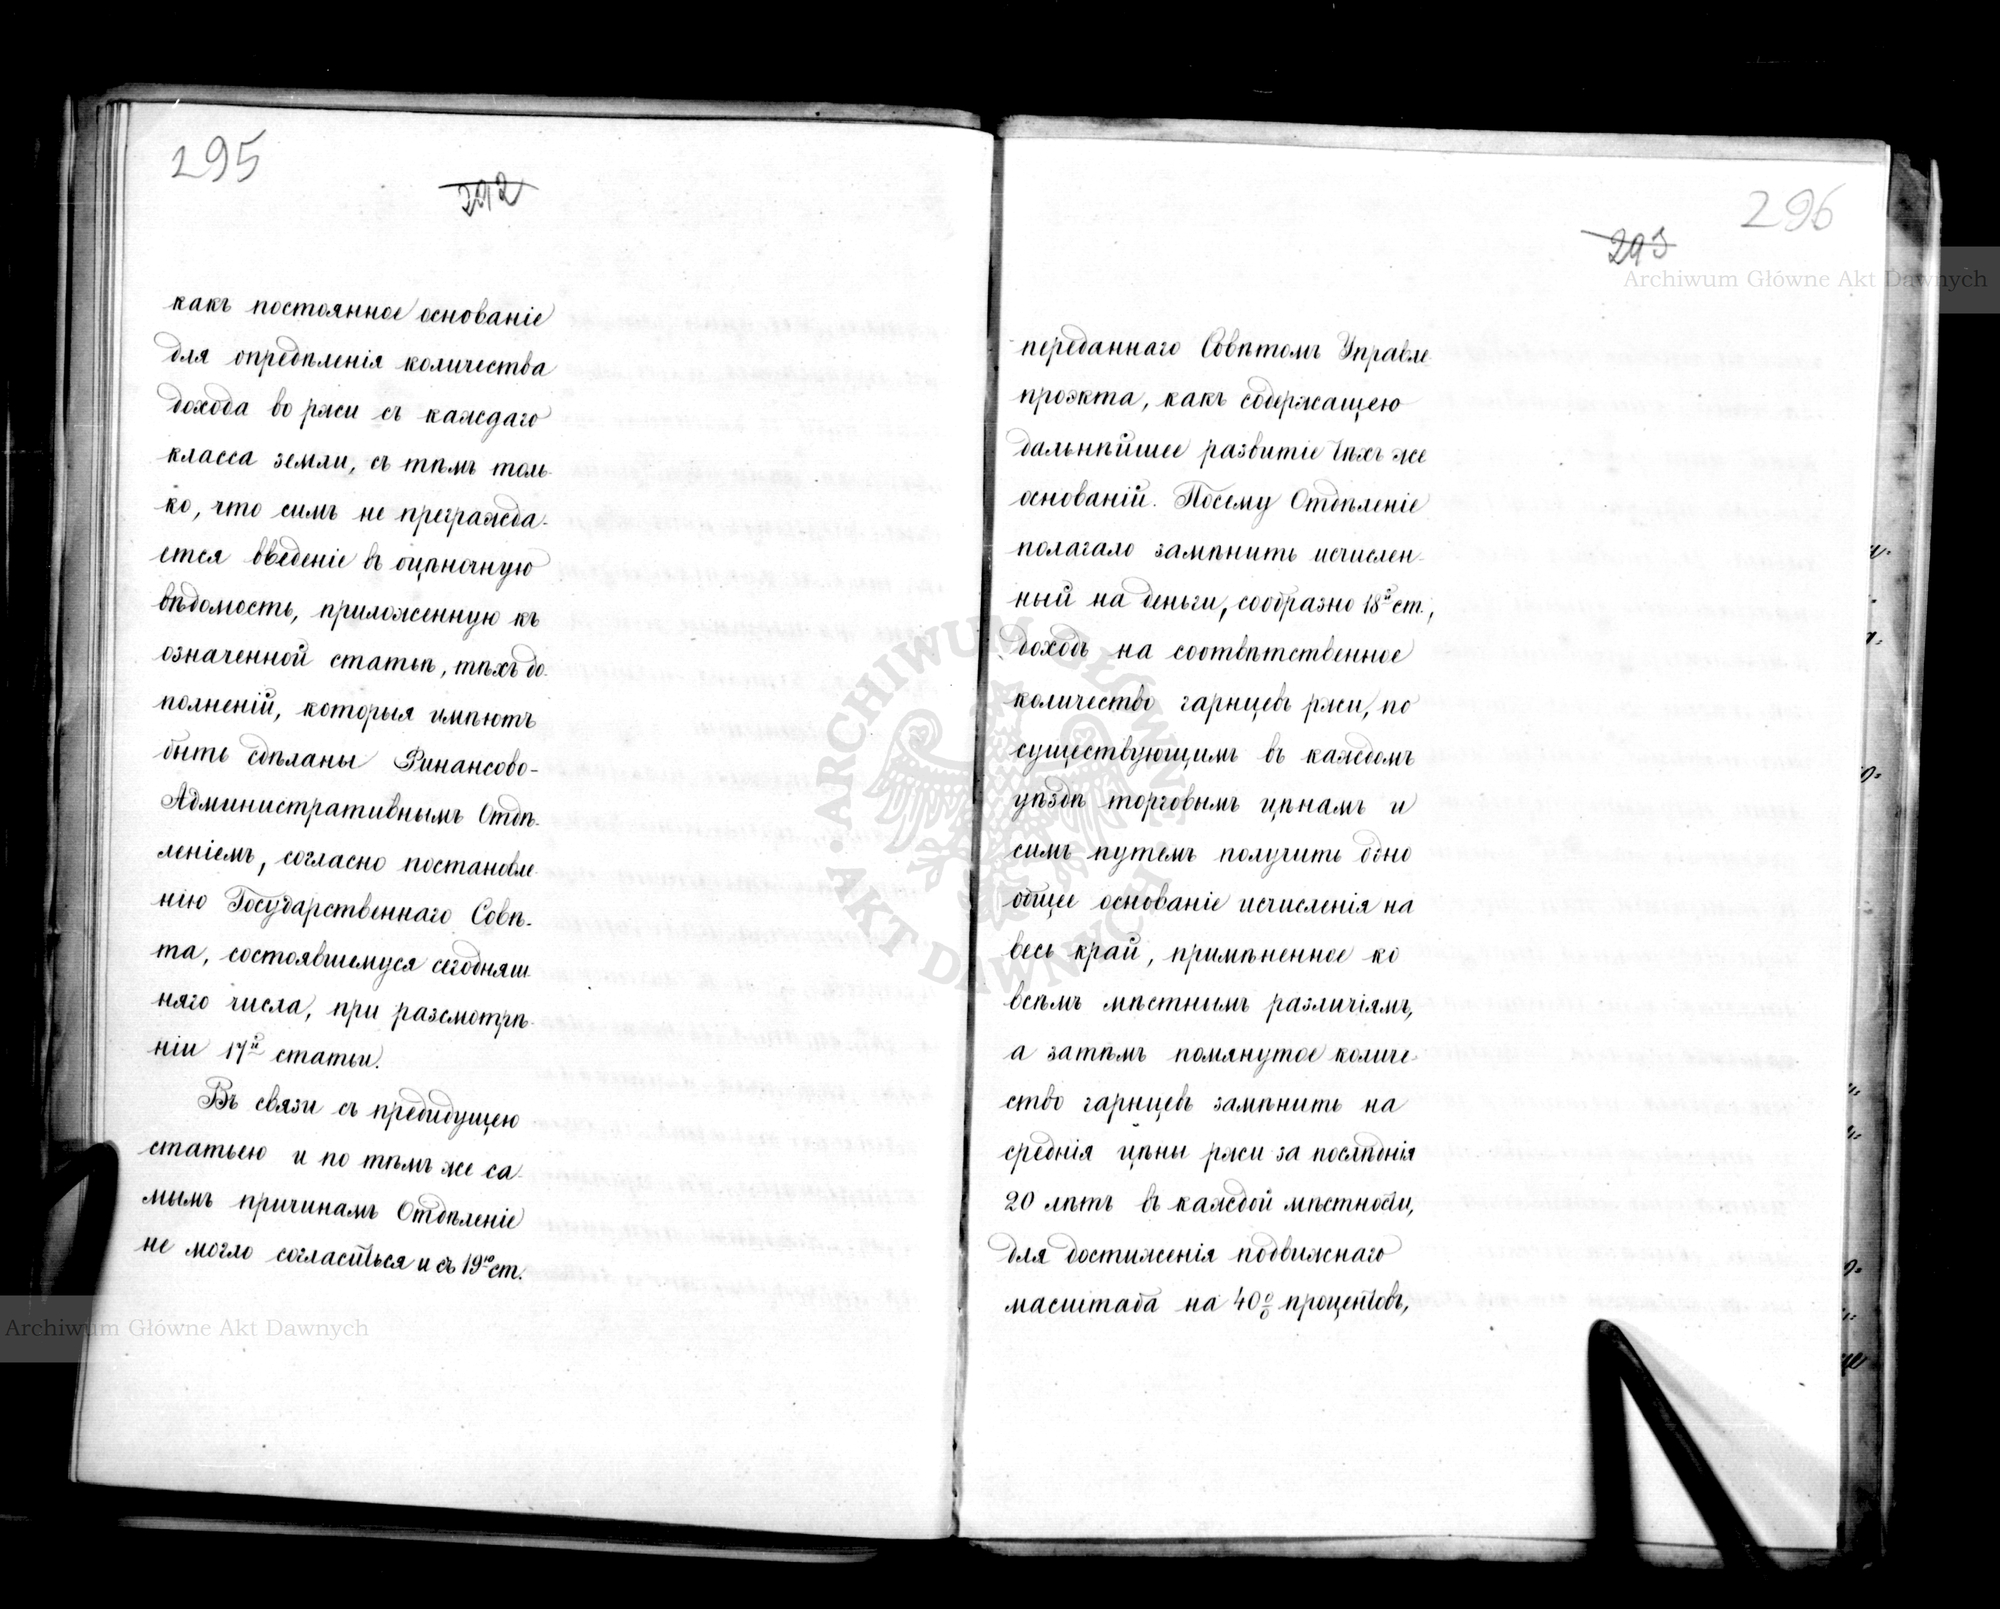 295
292
какъ постоянное основаніе
для опредѣленія количества
дохода во ржи съ каждаго
класса земли, съ тѣмъ толь-
ко, что симъ не прегражда-
ется введеніе въ оцѣночную
вѣдомость, приложенную къ
означенной статьѣ, тѣхъ до-
полненій, которыя имѣютъ
быть сдѣланы Финансово-
Административнымъ Отдѣ-
леніемъ, согласно постановле-
нію Государственнаго Совѣ-
та, состоявшемуся сегодняш-
няго числа, при разсмотрѣ-
ніи 17й статьи.
Въ связи съ предидущею
статьею и по тѣмъ же са-
мымъ причинамъ Отдѣленіе
не могло согласиться и съ 19ю ст.
296
293
переданнаго Совѣтомъ Управле-
проэкта, какъ содержащею
дальнѣйшее развитіе тѣхъ же
основаній. Посему Отдѣленіе
полагало замѣнить исчислен-
ный на деньги, сообразно 18й ст.,
доходъ на соотвѣтственное
количество гарнцевъ ржи, по
существующимъ въ каждомъ
уѣздѣ торговымъ цѣнамъ и
симъ путемъ получить одно
общее основаніе исчисленія на
весь край, примѣненное ко
всѣмъ мѣстнымъ различіямъ,
а затѣмъ помянутое количе-
ство гарнцевъ замѣнить на
среднія цѣны ржи за послѣднія
20 лѣтъ въ каждой мѣстности,
для достиженія подвижнаго
масштаба на 40% процентовъ,
Archiwum Główne Akt Dawnych
Archiwum Główne Akt Dawnych
ARCHIWUM GŁÓWNE AKT DAWNYCH